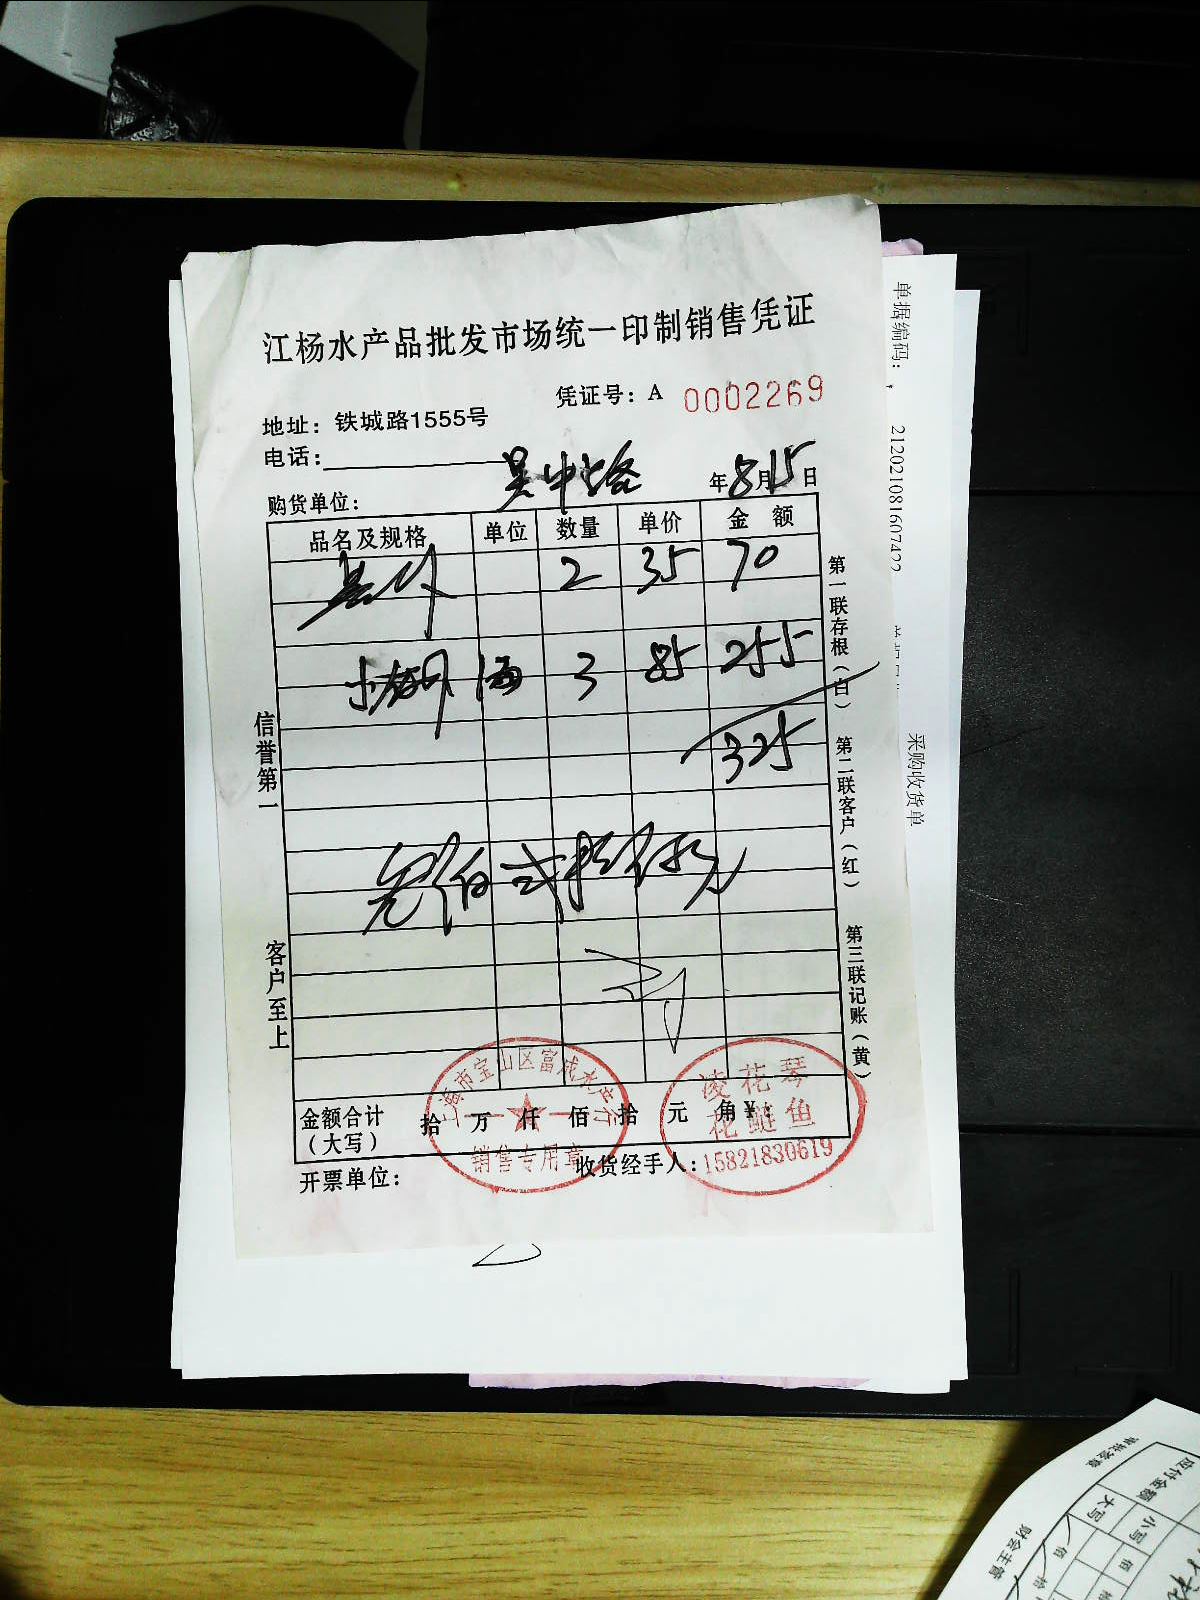 江杨水产品批发市场统一印制销售凭证
凭证号：A 0002269
地址：铁城路1555号
电话：
购货单位： 吴中路 年8月15日
品名及规格 单位 数量 单价 金 额
2 35 70
3 85 255
325
叁佰贰拾伍元
信誉第一
客户至上
第一联存根（白）
第二联客户（红）
第三联记账（黄）
金额合计（大写） 拾 万 仟 佰 拾 元 角 ¥：
开票单位： 收货经手人：
上海市宝山区富成水产行
销售专用章
凌花琴
花鲢鱼
15821830619
单据编码：
21202108160742
采购收货单
审批签章
应付金额
大写
小写
佰
拾
佰
财会主管